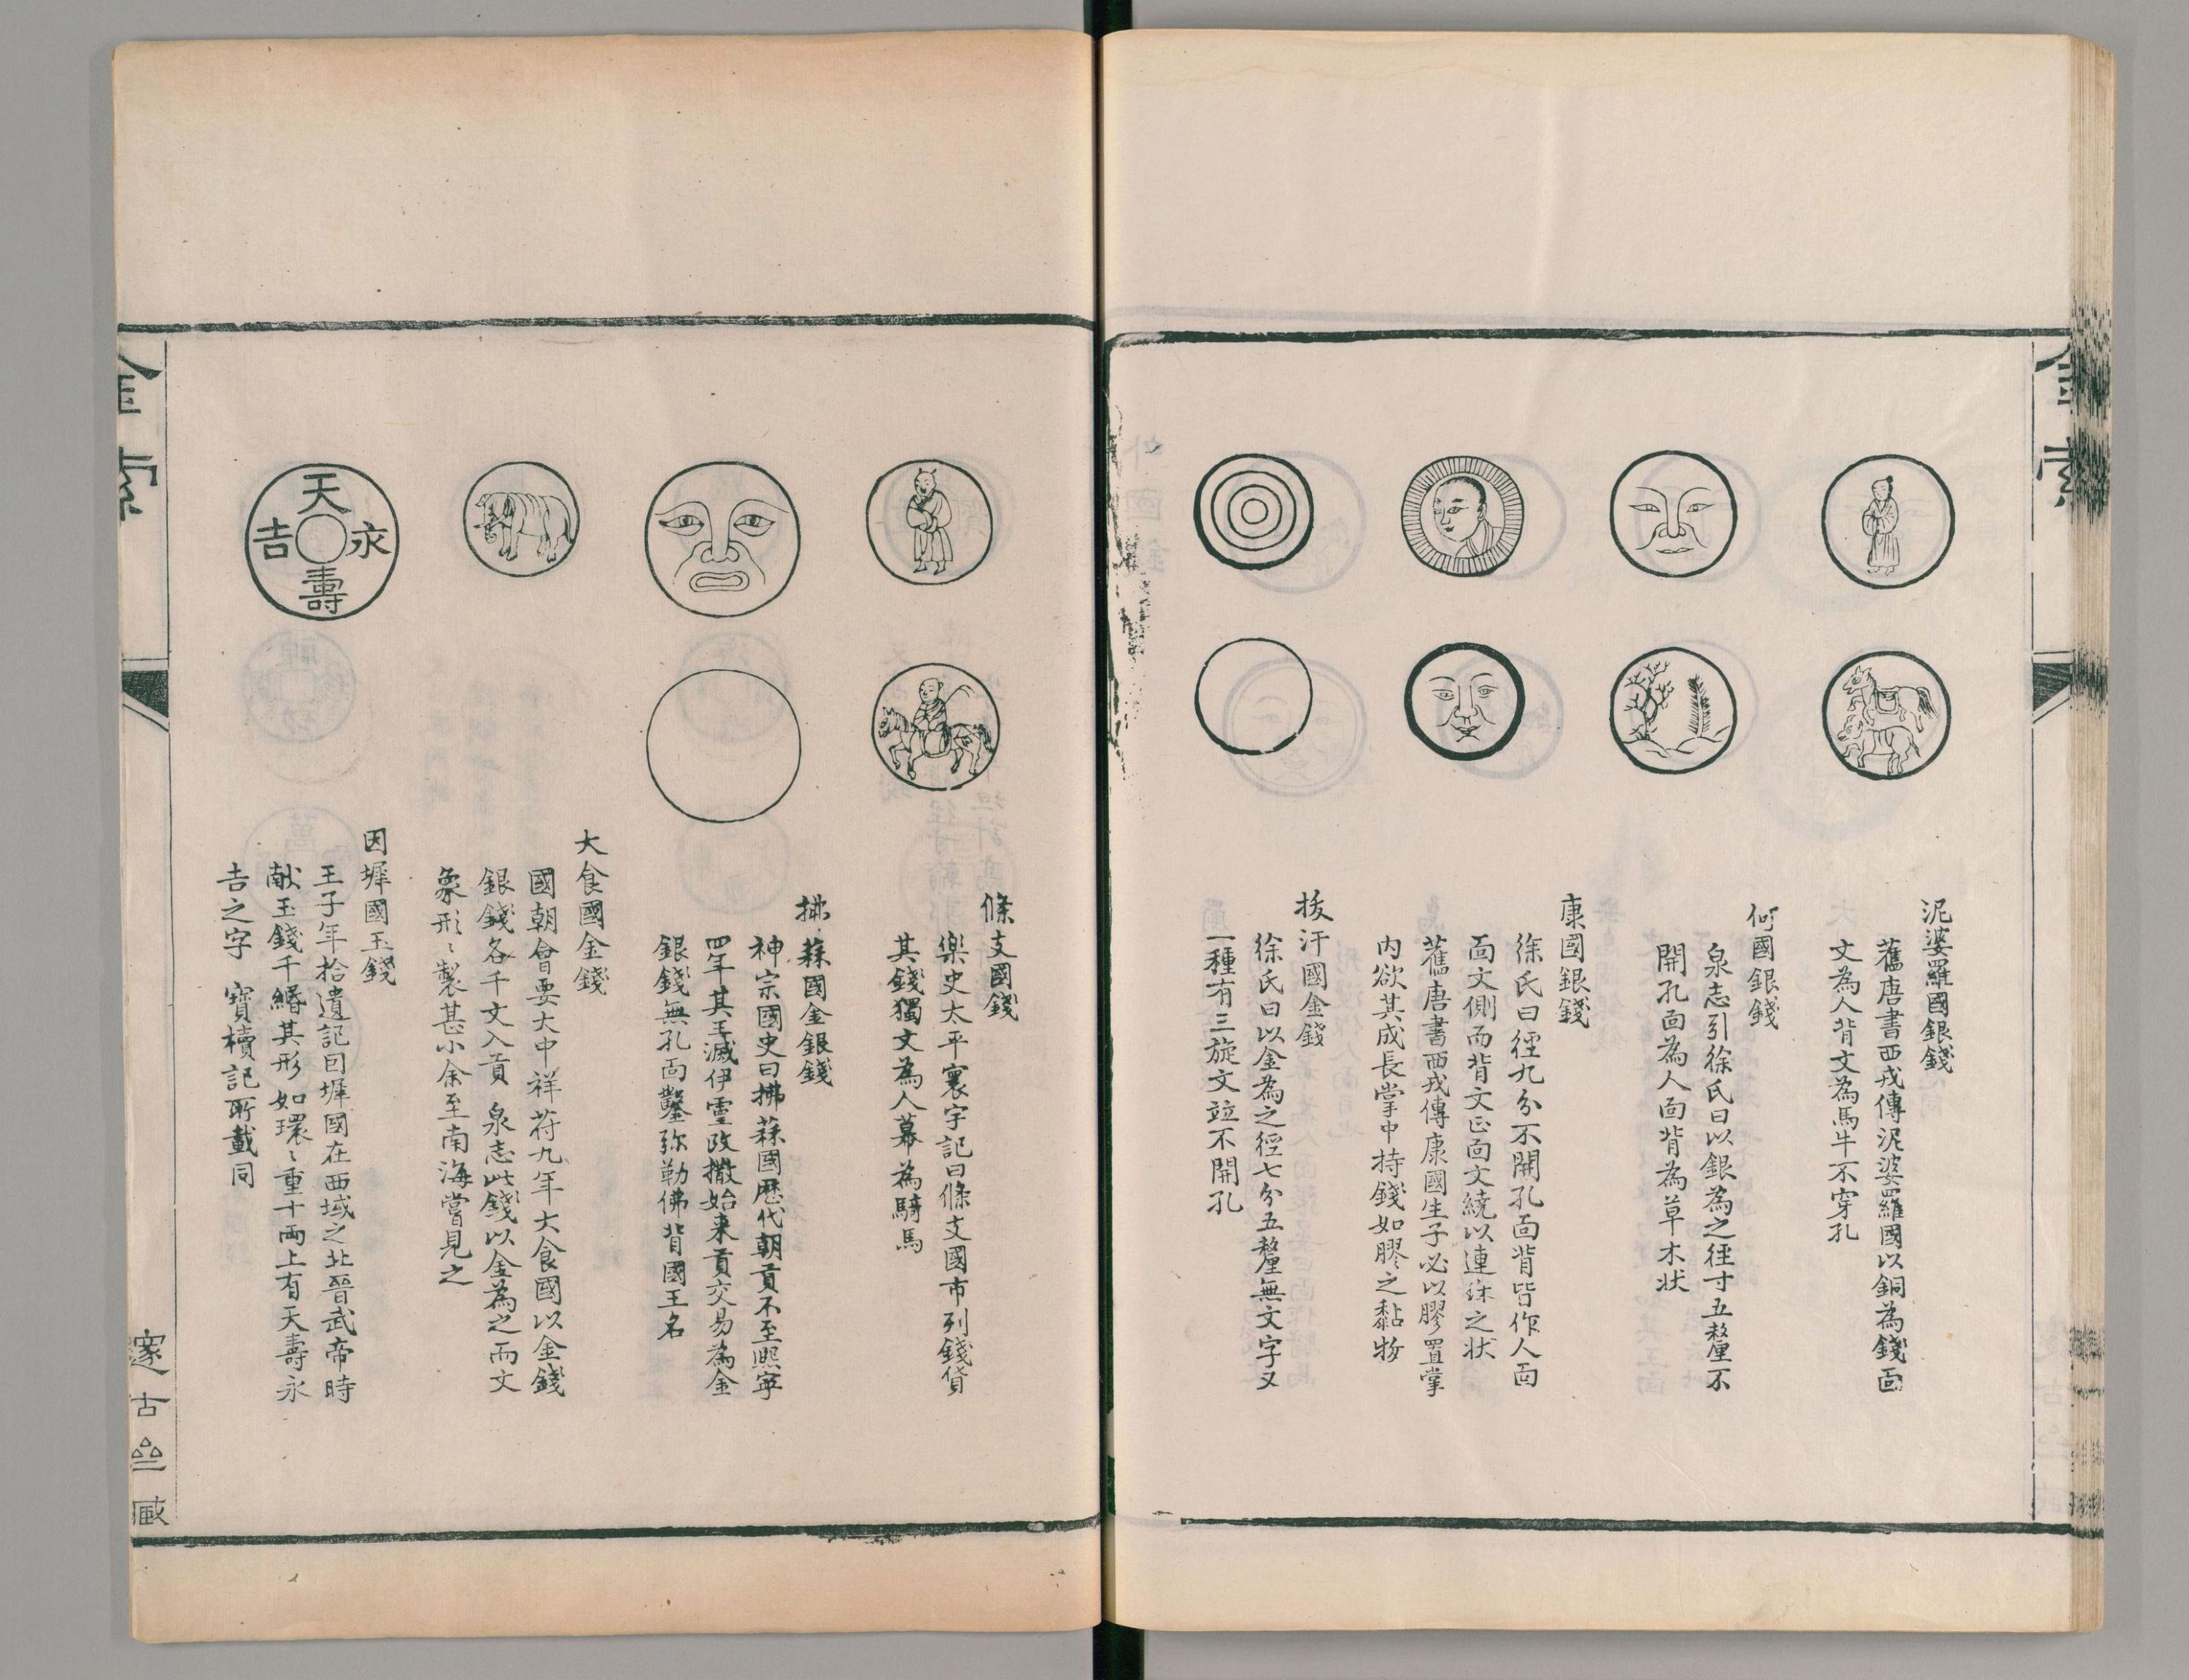 金索
泥婆羅國銀錢
舊唐書西戎傳泥婆羅國以銅為錢面
文為人背文為馬牛不穿孔
何國銀錢
泉志引徐氏曰以銀為之徑寸五釐不
開孔面為人面背為草木狀
康國銀錢
徐氏曰徑九分不開孔面背皆作人面
面文側而背文正面文繞以連珠之狀
舊唐書西戎傳康國生子必以膠置掌
内欲其成長掌中持錢如膠之黏物
拔汗國金錢
徐氏曰以金為之徑七分五釐無文字又
一種有三旋文竝不開孔
條支國錢
樂史太平寰宇記曰條支國市列錢貨
其錢獨文為人幕為騎馬
拂菻國金銀錢
神宗國史曰拂菻國歷代朝貢不至熙寧
四年其王滅伊靈改撒始来貢交易為金
銀錢無孔面鑿弥勒佛背國王名
大食國金錢
國朝會要大中祥符九年大食國以金錢
銀錢各千文入貢 泉志此錢以金為之而文
象形〻製甚小余至南海嘗見之
因墀國玉錢
王子年拾遺記曰墀國在西域之北晉武帝時
献玉錢千緡其形如環〻重十兩上有天壽永
吉之字 寶櫝記所載同
天壽永吉
金索
邃古亝臧